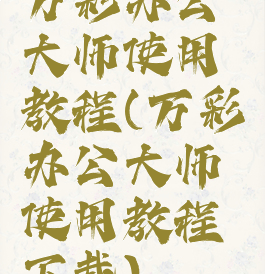 万彩办公
大师使用
教程(万彩
办公大师
使用教程
下载)